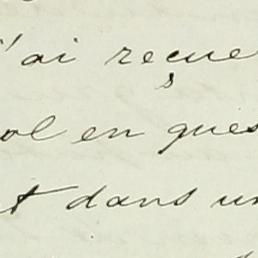 j'ai reçue
ol en ques
t dans un